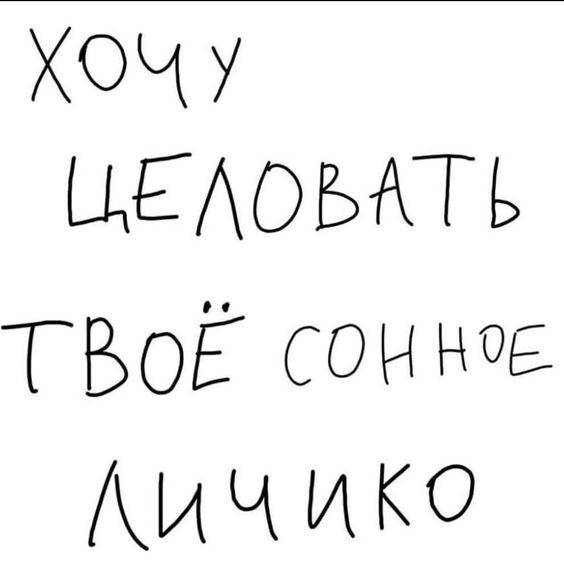 ХОЧУ
ЦЕЛОВАТЬ
ТВОЁ СОННОЕ
ЛИЧИКО